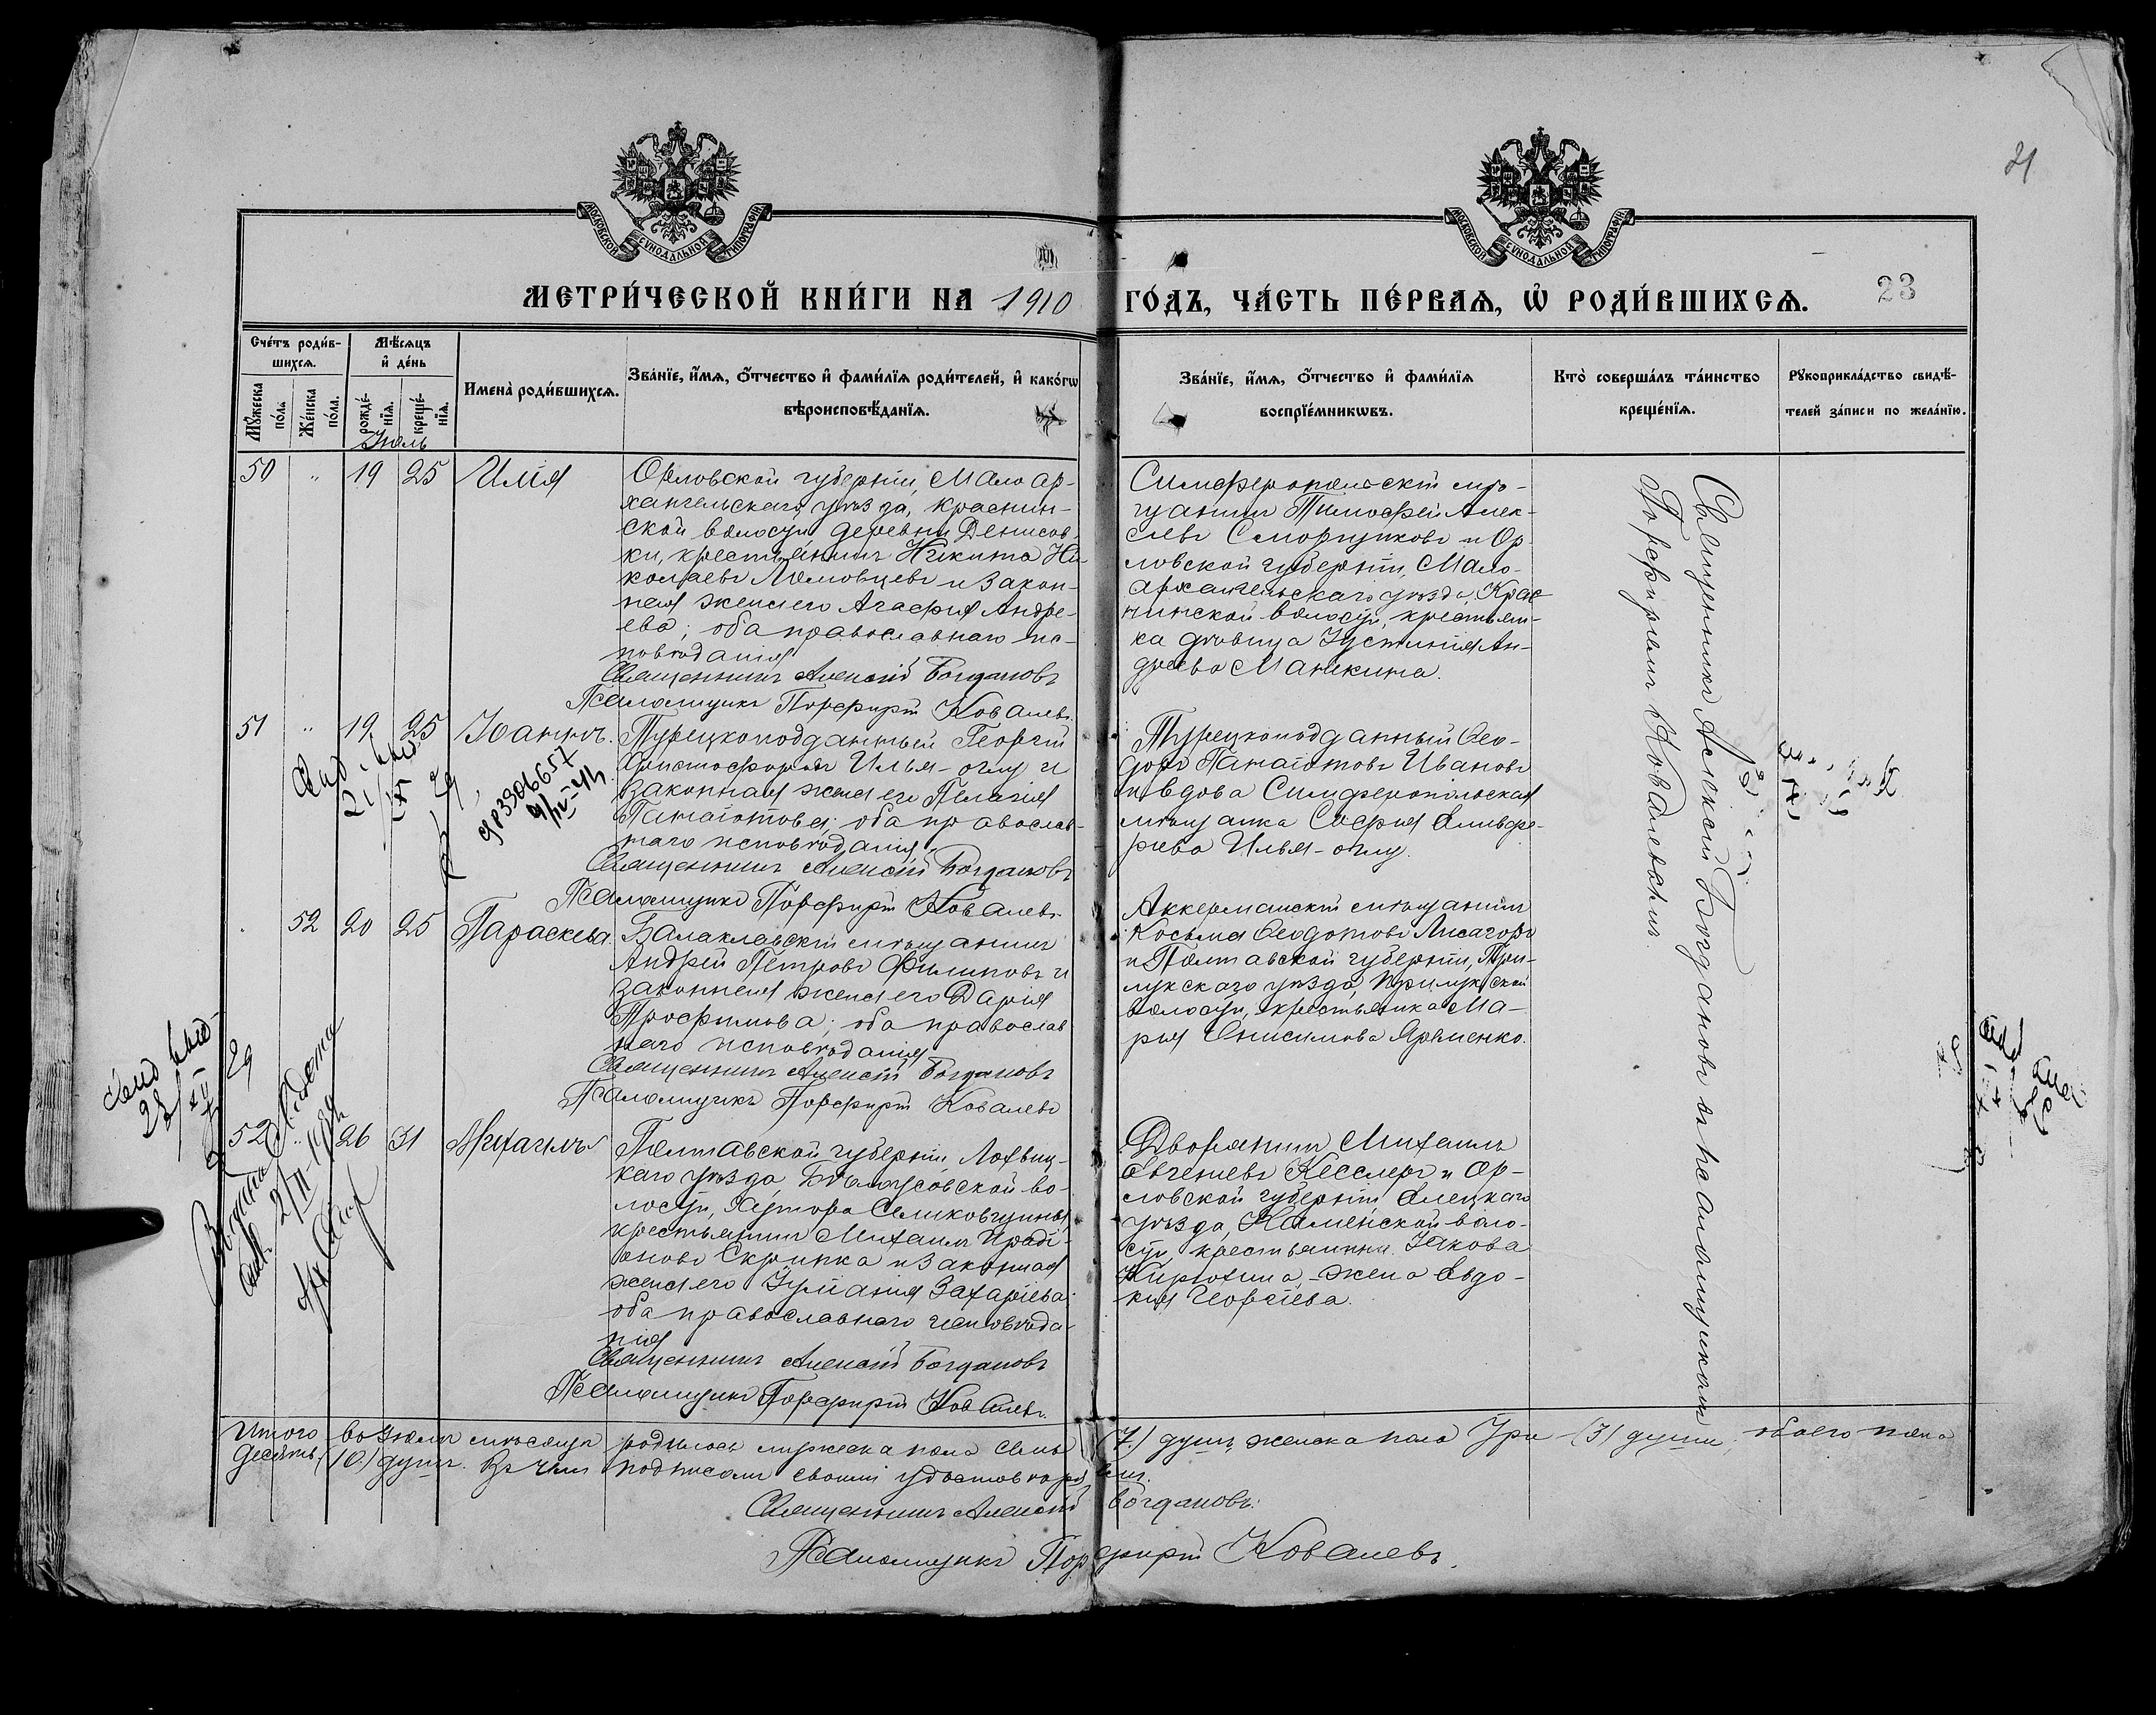 21
МОСКОВСКОЙ СУНОДАЛЬНОЙ ТИПОГРАФІИ
МОСКОВСКОЙ СУНОДАЛЬНОЙ ТИПОГРАФІИ
МЕТРИ́ЧЕСКОЙ КНИ́ГИ НА 1910 ГО́ДЪ, ЧА́СТЬ ПЕ́РВАЯ, Ѡ҆ РОДИ́ВШИХСЯ.
23
Сче́тъ роди́в-
шихся.
Мѣ́сяцъ
и҆ де́нь
Мꙋ́жеска
по́ла
Же́нска
по́ла.
рожде́-
нїя.
креще́-
нїя.
Имена̀ роди́вшихся.
Зва́нїе, и҆́мя, ѻ҆́тчество и҆ фами́лїя роди́телей, и҆ како́гѡ
вѣроисповѣ́данїя.
Зва́нїе, и҆́мя, ѻ҆́тчество и҆ фами́лїя
воспрїе́мникѡвъ.
Кто̀ соверша́лъ та́инство
креще́нїя.
Рꙋкоприкла́дство свидѣ́-
телей за́писи по жела́нїю.
Іюль
50 " 19 25 Илія
Орловской губерніи, Мало ар-
хангельскаго уѣзда, Краснин-
ской волости деревни Денисов-
ки, крестьянинъ Никита Ни-
колаевъ Ломовцевъ и закон-
ная жена его Агафія Андре-
ева; оба православнаго ис-
повѣданія
Священникъ Алексій Богдановъ
Псаломщикъ Порфирій Ковалевъ.
Симферопольскій мѣ-
щанинъ Тимофей Алек-
сѣевъ Скворцовъ и Ор-
ловской губерніи, Мало-
архангельскаго уѣзда, Крас-
нинской волости, крестьян-
ка дѣвица Іустинія Ан-
дреева Манякина.
51 " 19 25 Іоаннъ.
Турецкоподданный Георгій
Христофоровъ Ильм-оглу и
законная жена его Пелагія
Панаіотова; оба православ-
наго исповѣданія.
Священникъ Алексій Богдановъ
Псаломщикъ Порфирій Ковалевъ.
Турецкоподданный Ѳео-
доръ Панаіотовъ Ивановъ
и вдова Симферопольская
мѣщанка Софія
Ильм-оглу.
52 20 25 Параскева
Балаклавскій мѣщанинъ
Андрей Петровъ Филиповъ и
законная жена его Дарія
Трофимова; оба православ
наго исповѣданія
Священникъ Алексій Богдановъ
Псаломщикъ Порфирій Ковалевъ
Аккерманскій мѣщанинъ
Косьма Ѳеодотовъ Лисагоръ
и Полтавской губерніи, При-
лукского уѣзда, Прилукской
волости, крестьянка Ма-
рія Онисимова Ярменко.
52 " 26 31 Михаилъ
Полтавской губерніи Лохвиц-
каго уѣзда, во-
лости, хутора
крестьянинъ Михаилъ Иродi-
оновъ Скрипка и законная
жена его Іуліанія Захаріева;
оба православнаго исповѣда-
нія
Священникъ Алексій Богдановъ
Псаломщикъ Порфирій Ковалевъ.
Дворянинъ Михаилъ
Евгеніевъ Кесслеръ и Ор-
ловской губерніи, Елецкаго
уѣзда, Каменской воло-
сти, крестьянина Іакова
Кирютина, жена Евдо-
кія Георгіева.
Священникъ Алексій Богдановъ съ псаломщикомъ
Порфиріемъ Ковалевымъ.
Итого въ Іюлѣ мѣсяцѣ родилось мужеска пола семь (7) душъ женска пола Три (3) души, обоего пола
десять (10) душъ. Въ чемъ подписомъ своимъ удостовѣряемъ.
Священникъ Алексій Богдановъ.
Псаломщикъ Порфирій Ковалевъ.